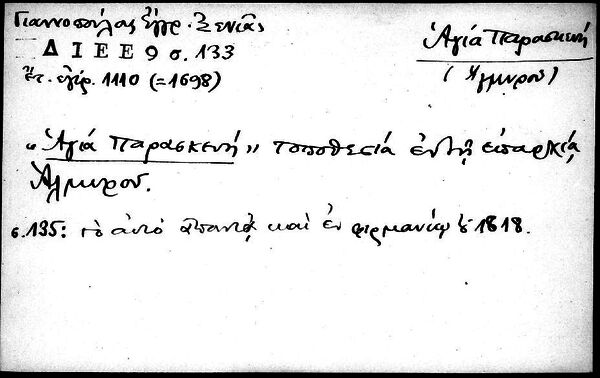 Γιαννοπούλος Ἔγγρ. Ξενιᾶς
Δ Ι Ε Ε 9 σ. 133
Ἔτ. ἐγίρ. 1110 (= 1698)
Ἁγία Παρασκευή
(Ἁλμυροῦ)
"Ἁγία Παρασκευή" τοποθεσία ἐν τῇ ἐπαρχίᾳ
Ἁλμυροῦ.
σ. 135: τὸ αὐτὸ ἀπαντᾷ καὶ ἐν φιρμανίῳ 1818.